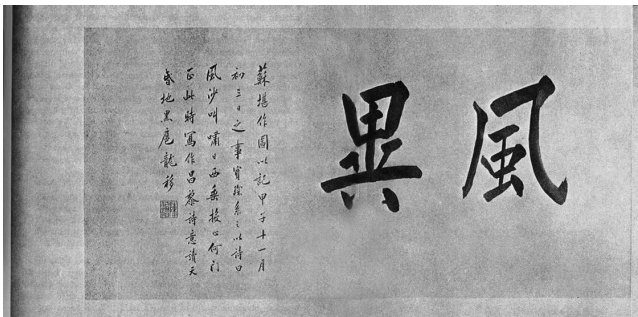 風異
蘇堪作圖以記甲子十一月
初三日之事寶琛系之以詩曰
風沙叫嘯日西垂投止何門
正此時寫作昌黎詩意讀天
昏地黑扈龍移